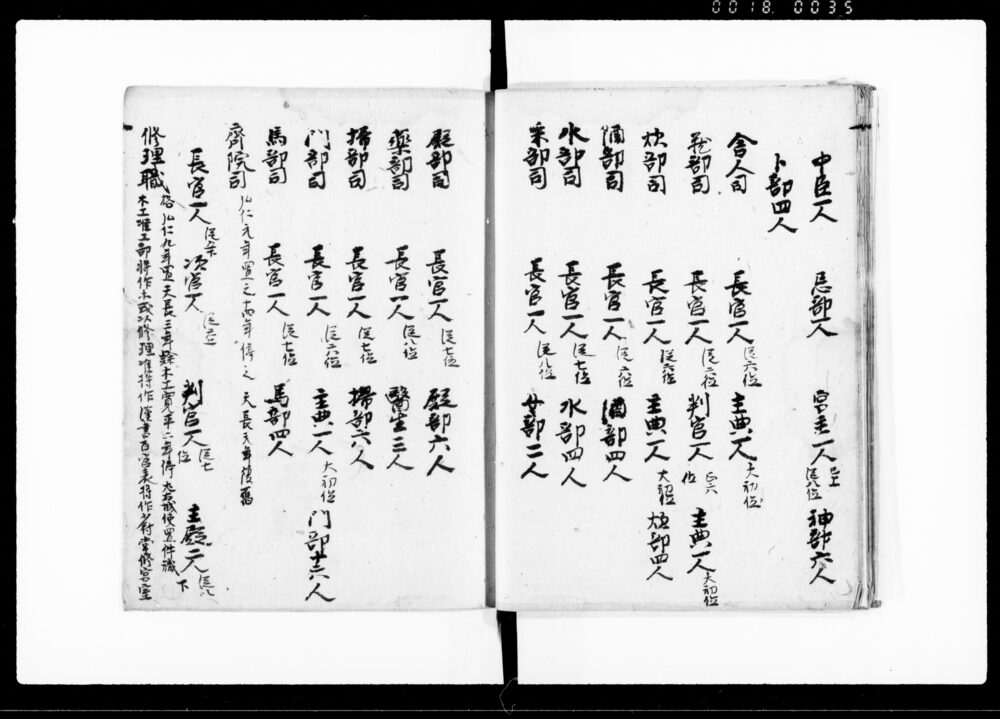 0018 0035
中臣一人 忌部一人 宮主一人 従八位 神部六人
卜部四人
舎人司 長官一人 従六位 主典一人 大初位
蔵部司 長官一人 従六位 判官一人 正六位 主典一人 大初位
炊部司 長官一人 従六位 主典一人 大初位 炊部四人
酒部司 長官一人 従六位 酒部四人
水部司 長官一人 従七位 水部四人
采部司 長官一人 従八位 女部二人
殿部司 長官一人 従七位 殿部六人
薬部司 長官一人 従八位 醫生三人
掃部司 長官一人 従七位 掃部六人
門部司 長官一人 従六位 主典一人 大初位 門部十六人
馬部司 長官一人 従七位 馬部四人
齋院司 弘仁元年置之 年停之 天長元年復舊
長官一人 次官一人 判官一人 従七位 主典一人 従八下
修理職 弘仁九年置天長三年 木工寛平二年停 左右城使置件職
木工准工部将作 或以修理准将作 漢書百官表将作少府掌修宮室